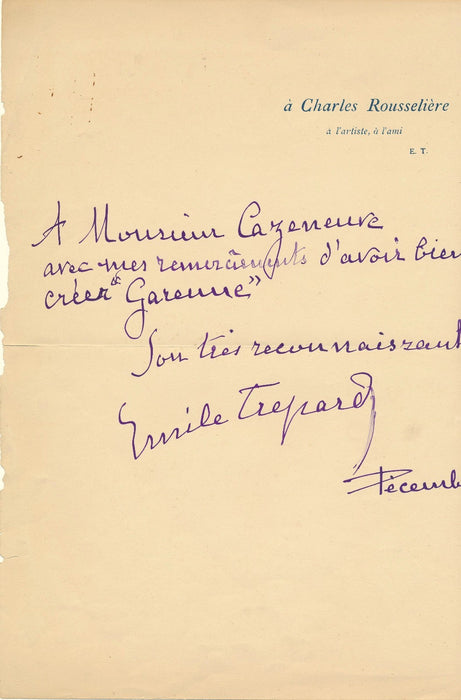 à Charles Rousselière
à l'artiste, à l'ami
E. T.
A Monsieur Cazeneuve
avec mes remerciements d'avoir bien
créer "Garenne"
Son très reconnaissant
Emile Trepard
Décemb